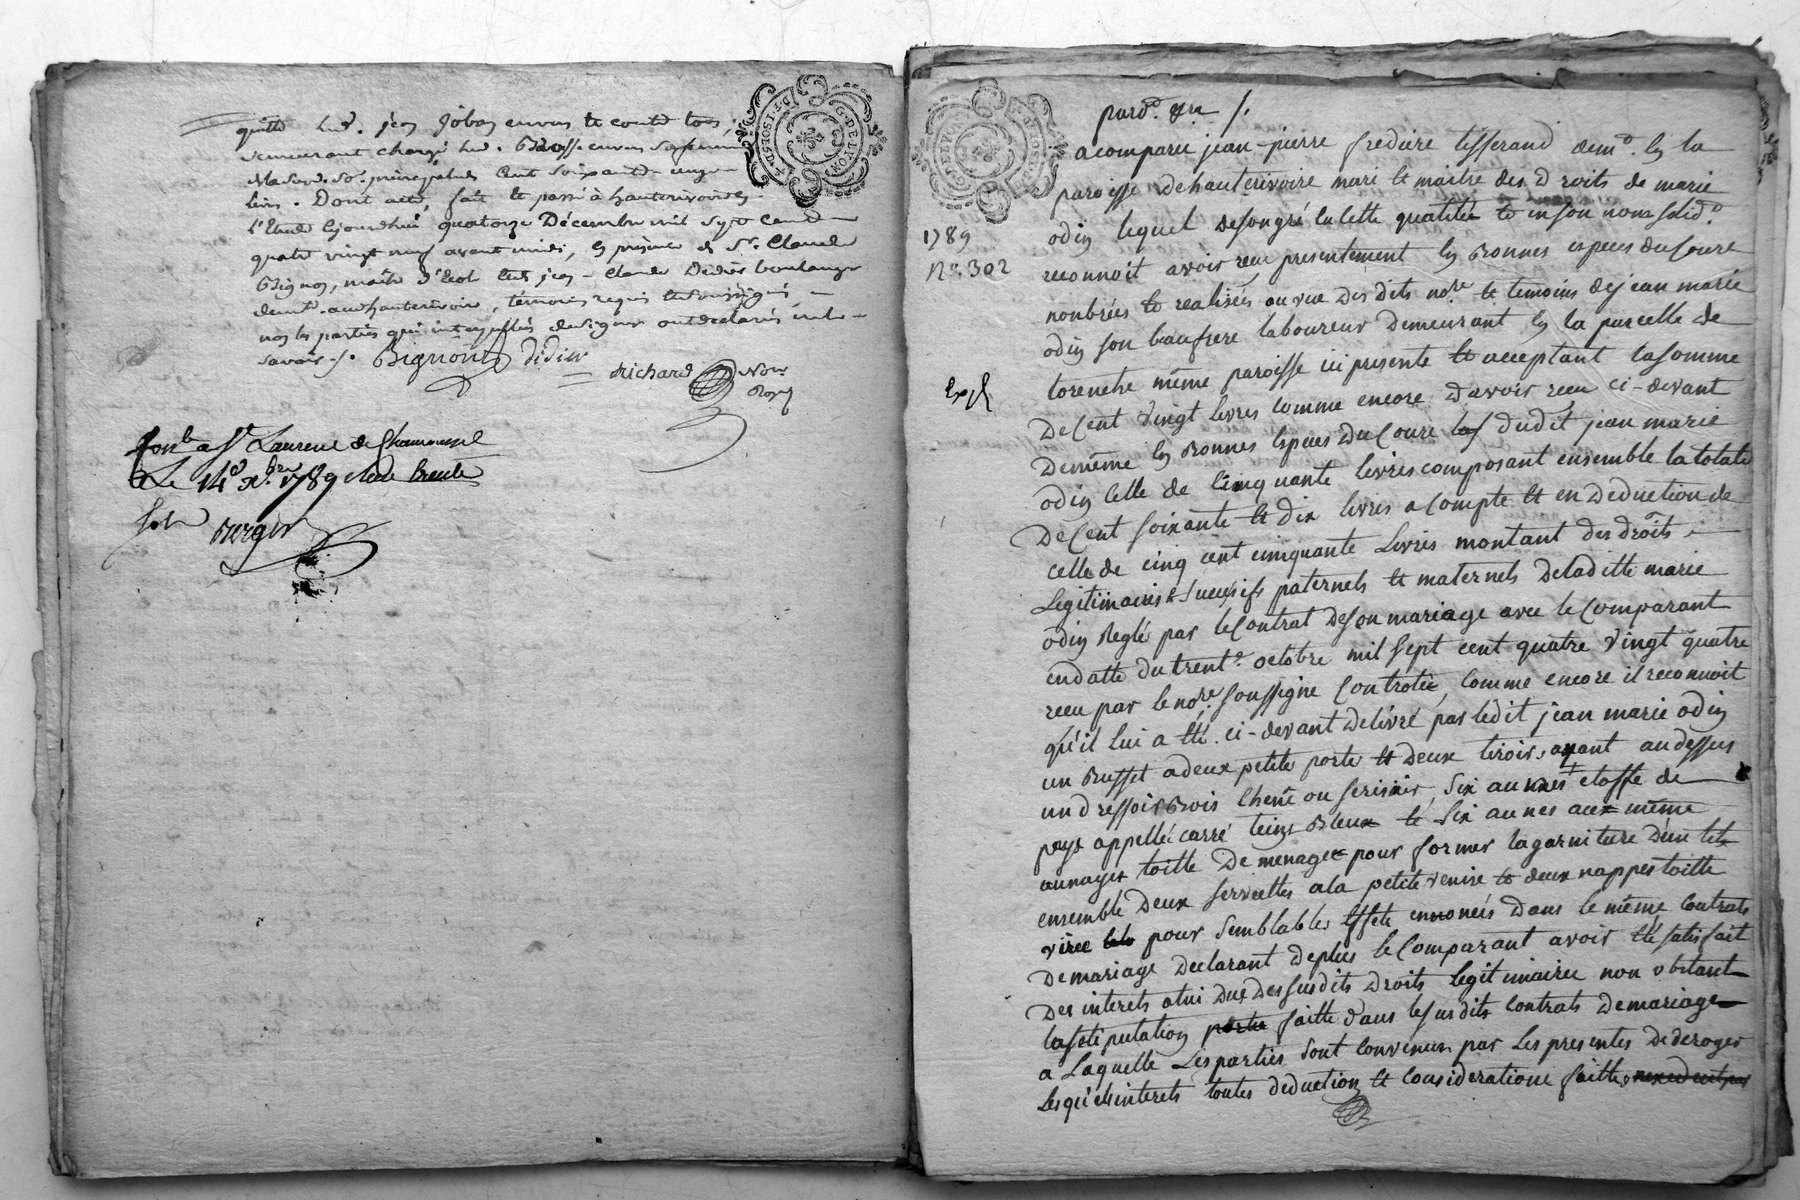 quitte led. jean Joban envers le contrôle tous,
demeurant chargé led. envers
cent soixante
livres. Dont acte, fait et passé à hauterivoire
l'Etude ajourdhui quatorze Décembre mil sept cent
quatre vingt neuf avant midi, en présence de Sr. Claude
Bignon, maitre d'école et jean-Claude Didier boulanger
demt. aud hauterivoire, témoins requis et soussignés,
non les parties qui interpellées de signer ont declarés ne le
savoir ./. Bignon Didier
Richard Nore
Royal
Conle a St Laurent de Chamousset
Le 14e xbre 1789 Reçu trente
sols Berger
G. DE LYON
pard. gra /.
1789
No. 302
Expé
acomparu jean-pierre frediere tisserand demt. en la
paroisse dehauterivoire mari et maitre des Droits de marie
odin lequel desongré en cette qualitée et en son nom solidre
reconnoit avoir reçu presentement en Bonnes especes du Cours
nonbrées et realisées au vue des dits nore. et temoins dejean marie
odin son beaufrere laboureur Demeurant en la parcelle de
torenche même paroisse ici presente et acceptant lasomme
De Cent Vingt livres comme encore d'avoir reçu ci-devant
Demême en Bonnes especes Du Cours dudit jean marie
odin celle de Cinquante livres composant ensemble la totale
De Cent soixante et dix livres a Compte et en Deduction de
celle de cinq cent cinquante Livres montant des droits
Legitimaires & Sucessifs paternels et maternels Deladitte marie
odin Reglé par leContrat Deson mariage avec le Comparant
endatte du trente octobre mil sept cent quatre Vingt quatre
reçu par le nore. soussigne Controlée, comme encore il reconnoit
qu'il lui a été ci-devant Delivré par ledit jean marie odin
un Buffet a deux petite porte et Deux tiroirs, ayant audessus
un dressoir Bois Chene ou serisier, six aunnes etoffe de
pays appellé carré teins Bleux et six aunes aux même
aunages toille De menage pour former lagarniture D'un lit
ensemble Deux serviettes ala petite venise et deux nappes toille
viree pour semblables effets ennonées Dans le même Contrats
Demariage Declarant Deplus le Comparant avoir été satisfait
Des interets alui Dux des susdits Droits Legitimaires non obstant
lastipulation portee faitte Dans lesusdits Contrats Demariage
a Laquelle Les parties sont Convenus par Les presentes De deroger
Lesqu'els interets toutes deduction et considerations faitte